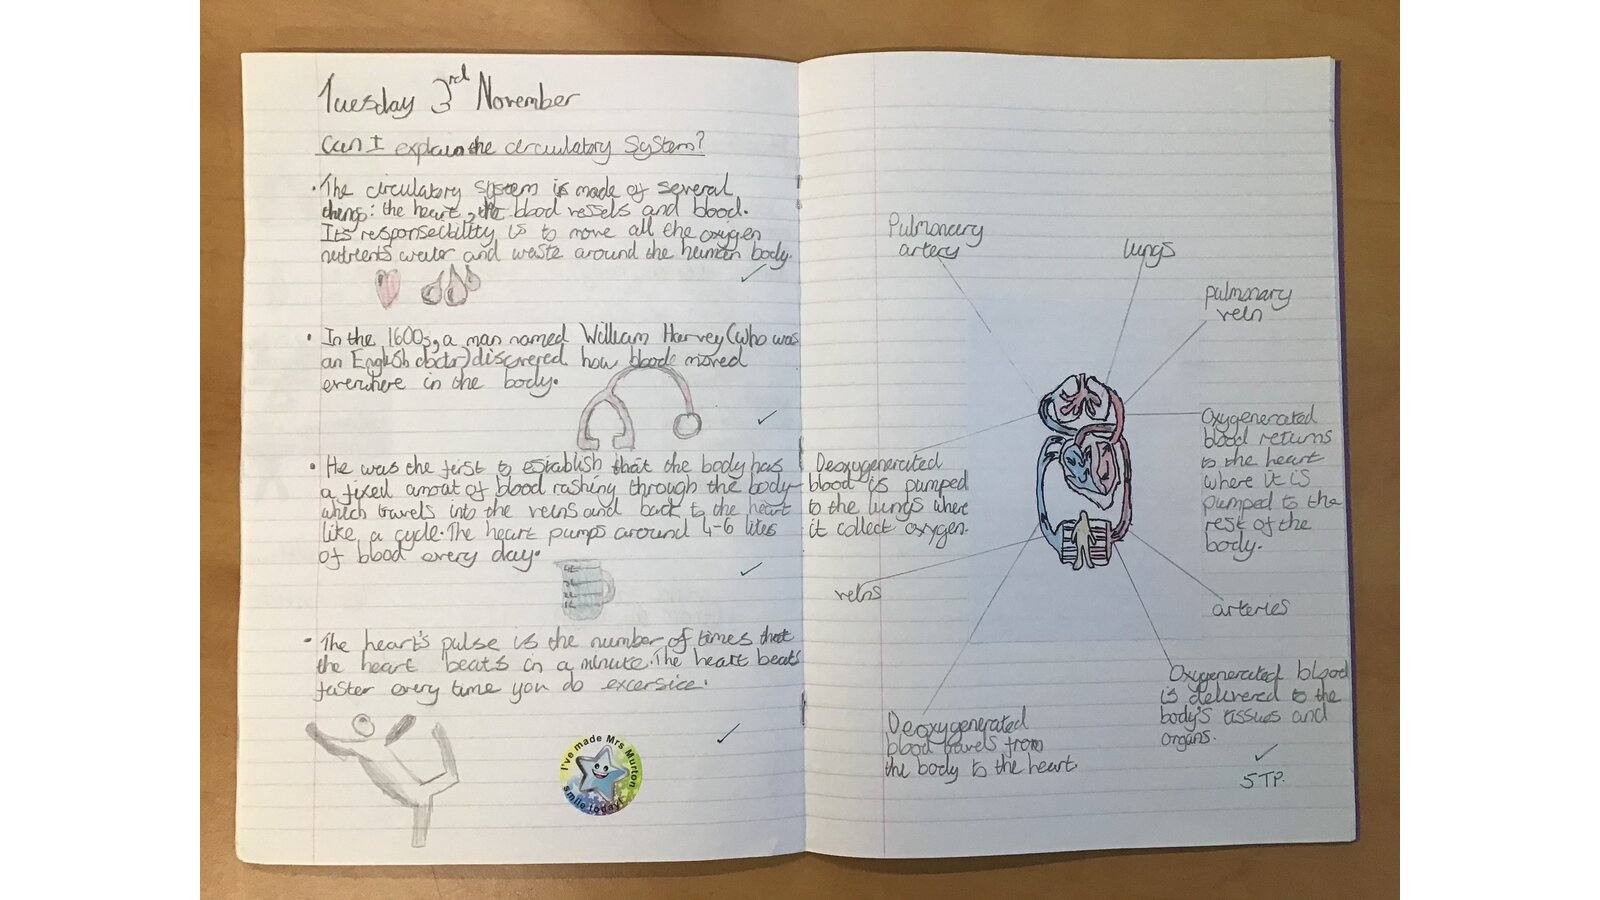 Tuesday 3rd November
Can I explain the circulatory System?
• The circulatory system is made of several
things: the heart, the blood vessels and blood.
Its responsebility is to move all the oxygen
nutrients water and waste around the human body.
• In the 1600s, a man named William Harvey (who was
an English doctor) discovered how blood moved
everwhere in the body.
• He was the first to establish that the body has
a fixed amoat of blood rashing through the body
which travels into the veins and back to the heart
like a cycle. The heart pumps around 4-6 lites
of blood every day.
4L
3L
2L
1L
- The heart's pulse is the number of times that
the heart beats in a minute. The heart beats
faster every time you do excersice.
I've made Mrs Murton
smile today!
Pulmonary
artery
lungs
pulmonary
vein
Oxygenerated
blood returns
to the heart
where it is
pumped to the
rest of the
body.
Deoxygenerated
blood is pumped
to the lungs where
it collect oxygen.
veins
arteries
Oxygenerated blood
is delivered to the
body's tissues and
organs.
Deoxygenerated
blood travels from
the body to the heart
STP.